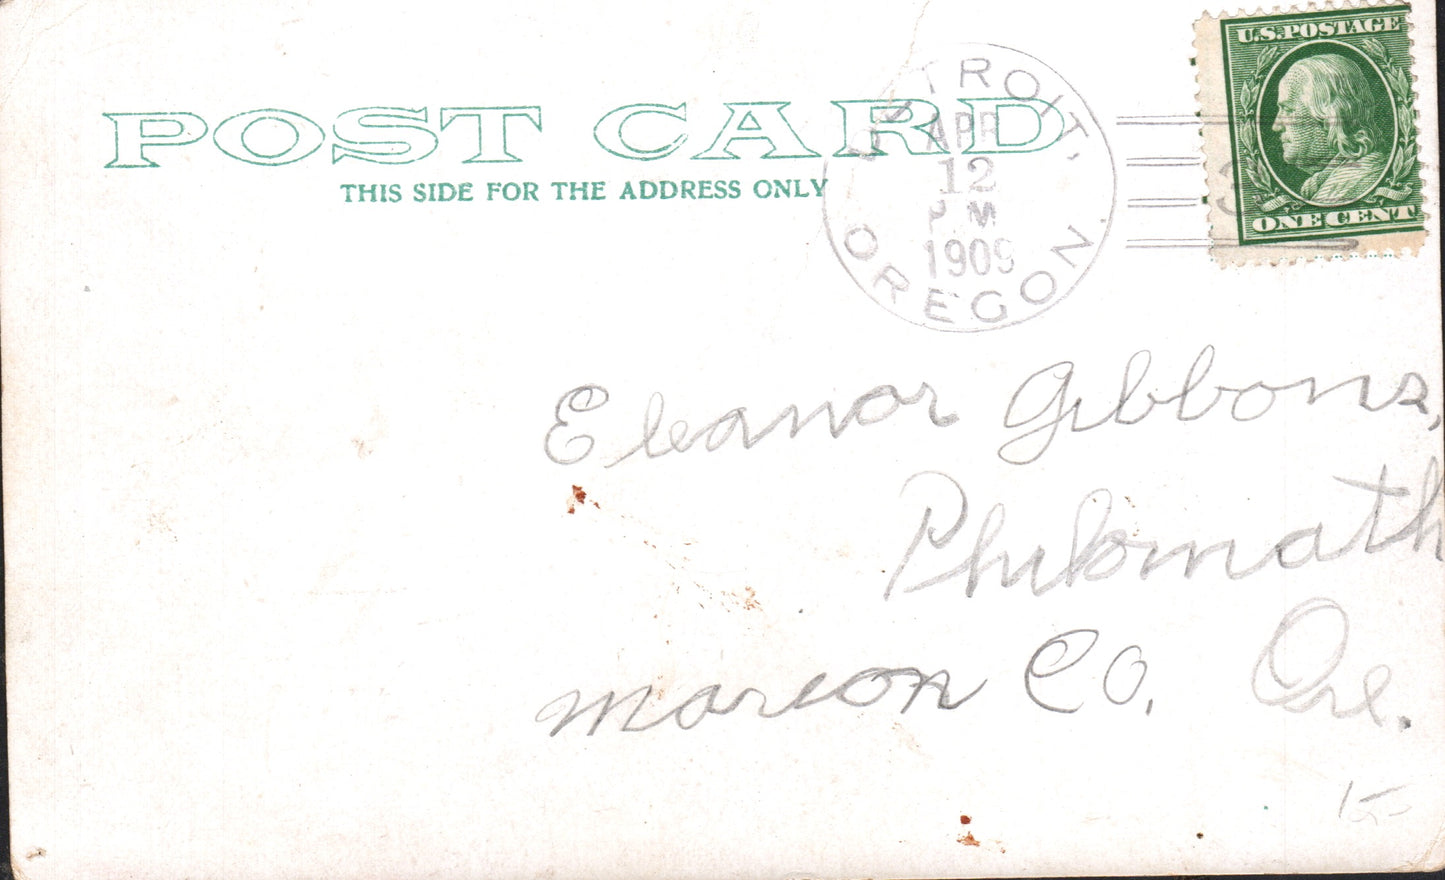 POST CARD
THIS SIDE FOR THE ADDRESS ONLY
DETROIT,
APR
12
P.M
1909
OREGON.
U.S. POSTAGE
ONE CENT
3
Eleanor Gibbons,
Philomath
Marion Co. Ore.
15-